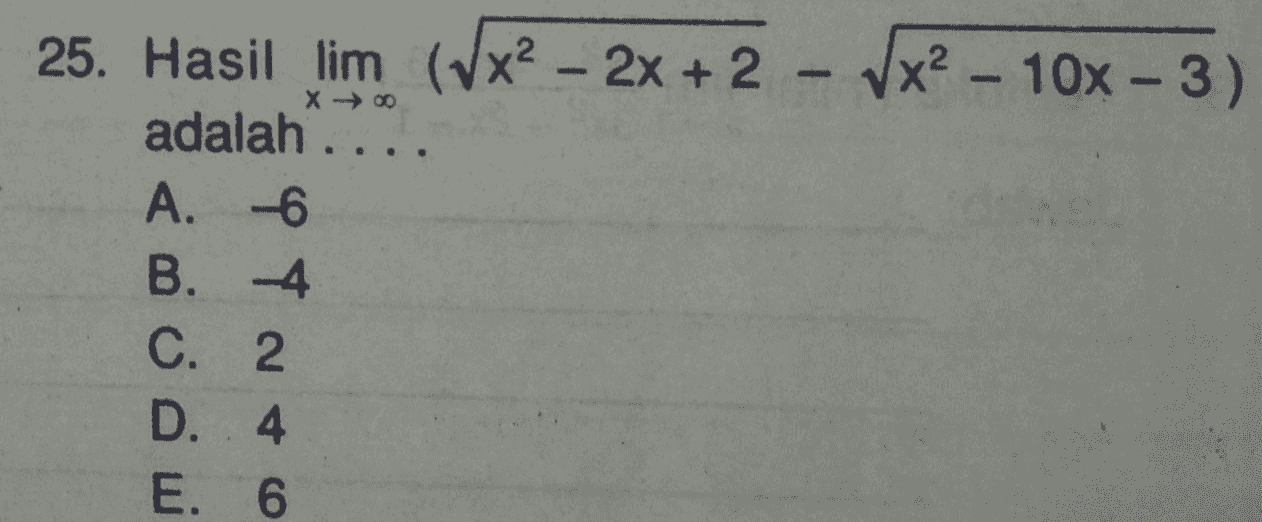 25. Hasil lim x → ∞ (√x² – 2x + 2 – √x² – 10x – 3)
adalah . . . .
A. –6
B. –4
C. 2
D. 4
E. 6